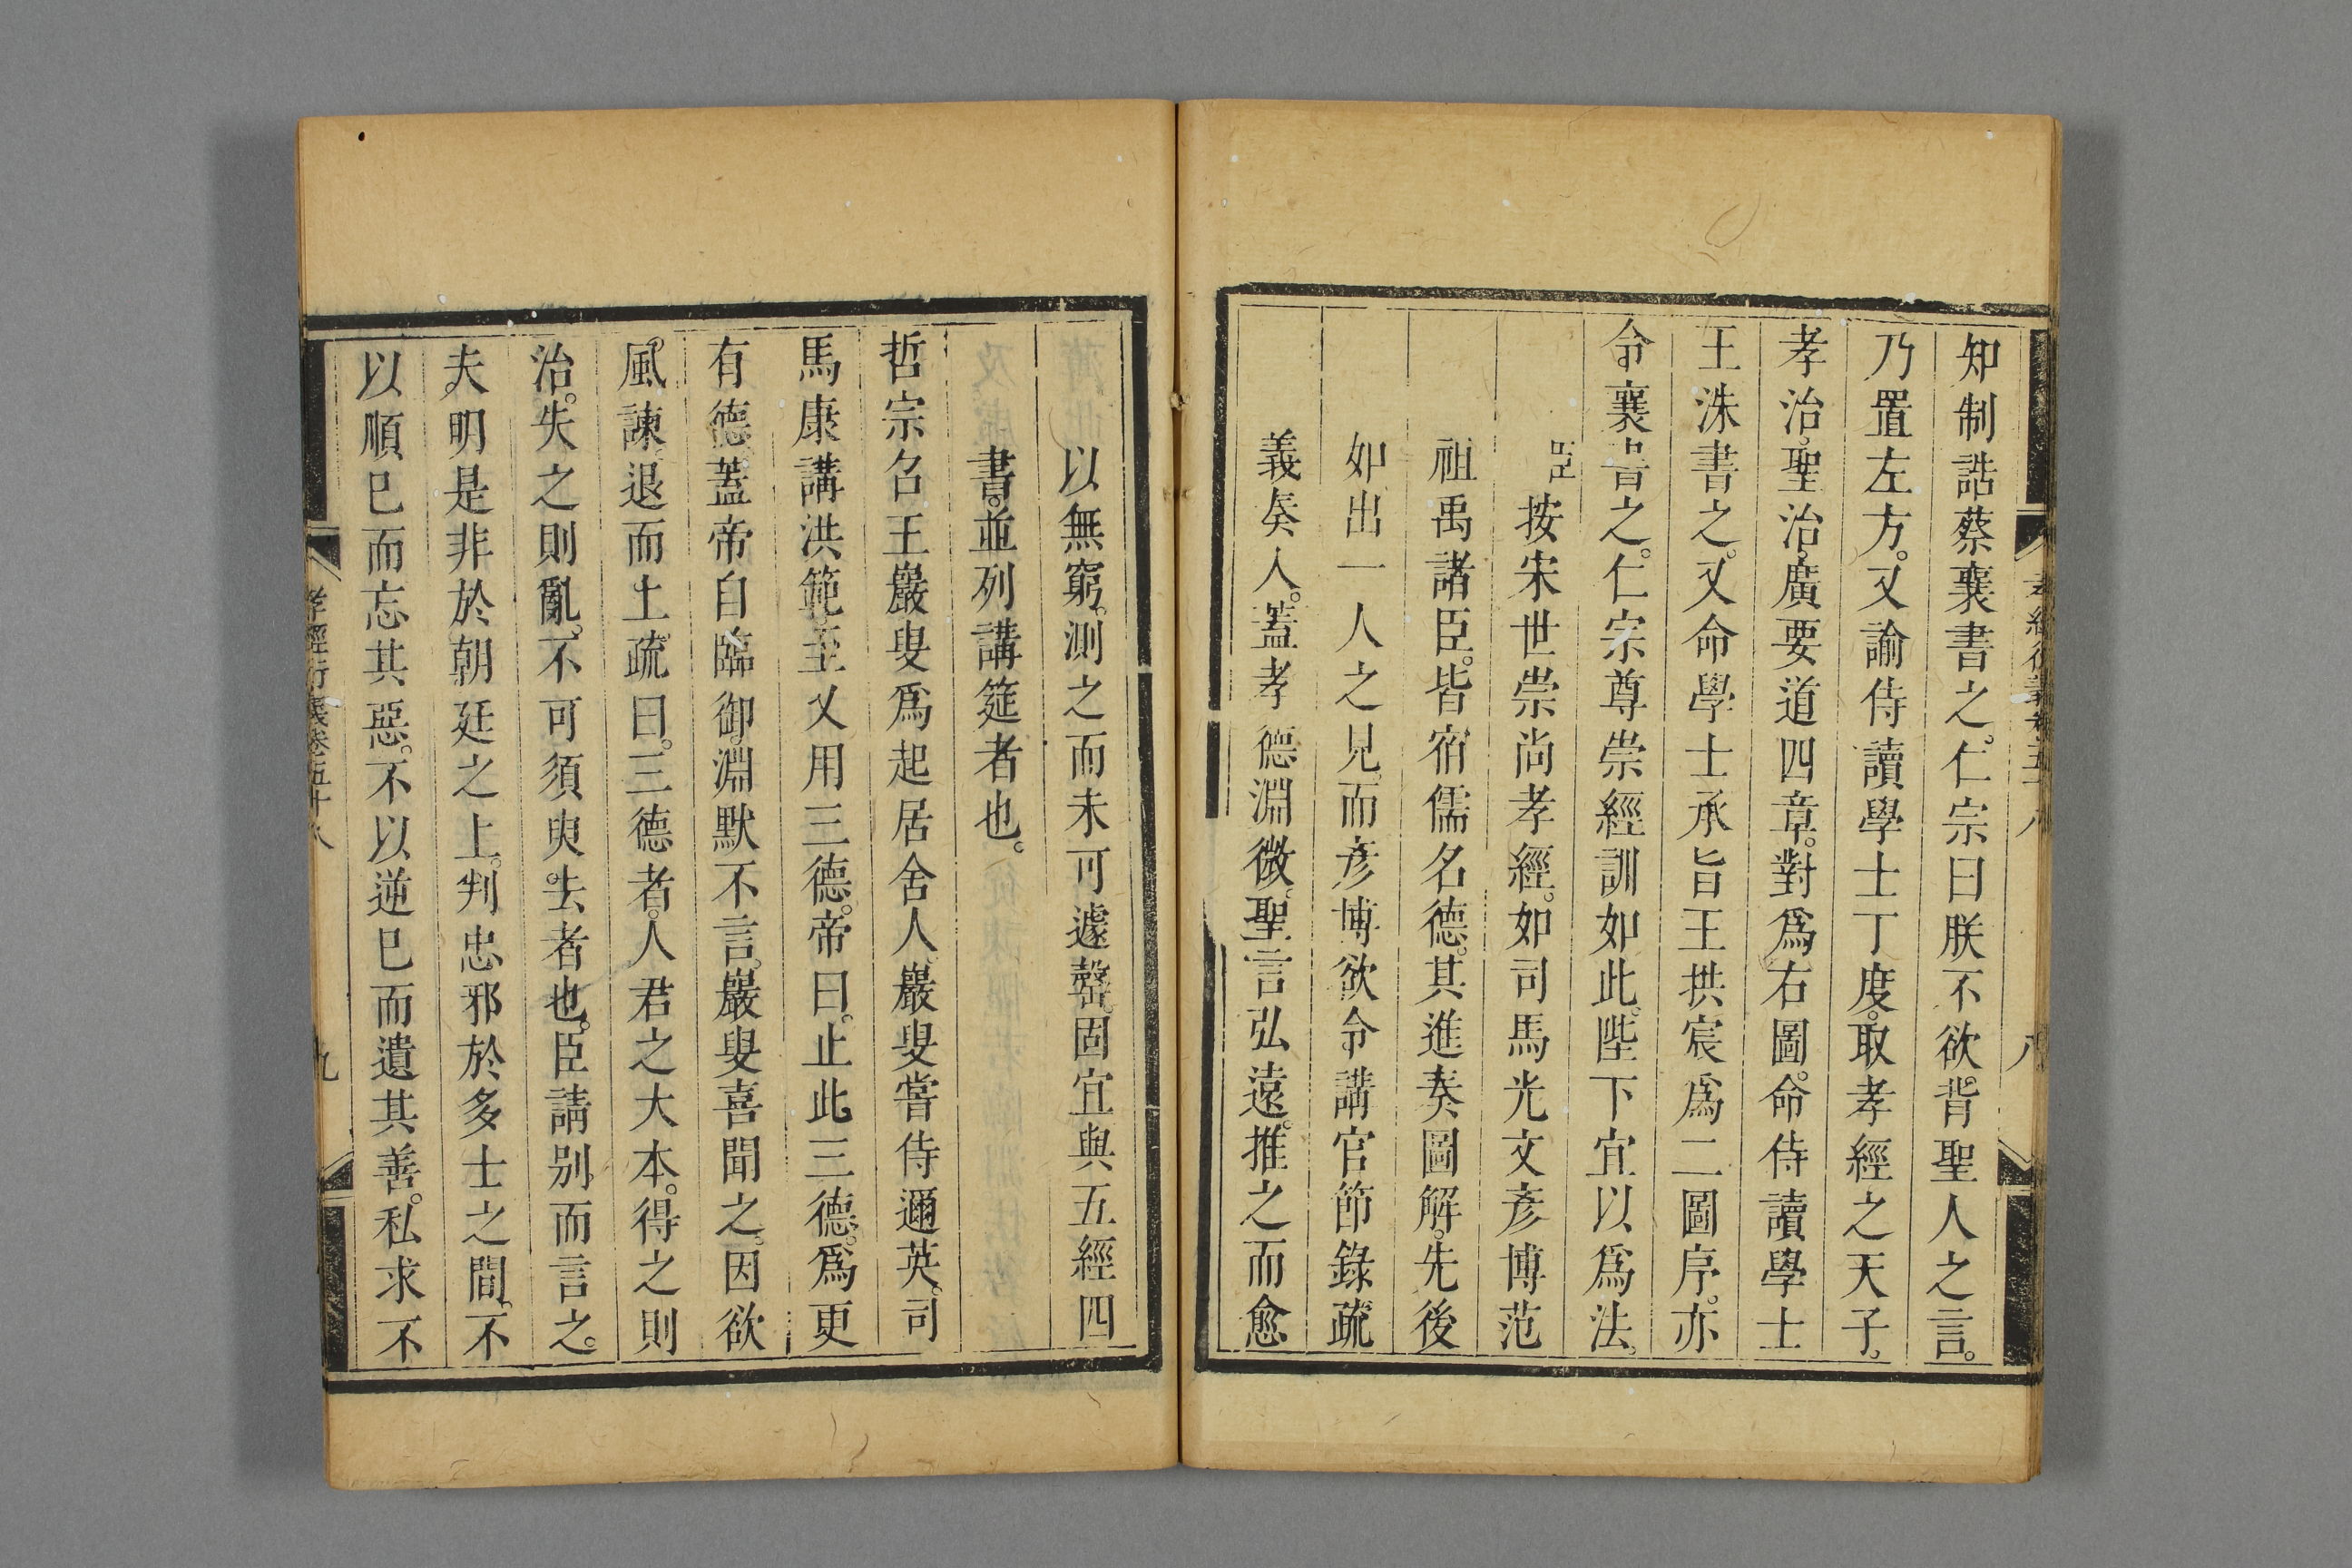 知制誥蔡襄書之。仁宗曰朕不欲背聖人之言。
乃置左方。又諭侍讀學士丁度。取孝經之天子。
孝治。聖治。廣要道四章。對爲右圖。命侍讀學士
王洙書之。又命學士承旨王拱宸爲二圖序。亦
令襄書之。仁宗尊崇經訓如此。陛下宜以爲法。
臣按宋世崇尚孝經。如司馬光文彥博范
祖禹諸臣。皆宿儒名德。其進奏圖解。先後
如出一人之見。而彥博欲令講官節錄疏
義奏入。蓋孝德淵微。聖言弘遠。推之而愈
以無窮。測之而未可遽罄。固宜與五經四
書。並列講筵者也。
哲宗召王巖叟爲起居舍人。巖叟嘗侍邇英。司
馬康講洪範。至乂用三德。帝曰。止此三德。爲更
有德。蓋帝自臨御。淵默不言。巖叟喜聞之。因欲
風諫。退而上疏曰。三德者。人君之大本。得之則
治。失之則亂。不可須臾去者也。臣請别而言之。
夫明是非於朝廷之上。判忠邪於多士之間。不
以順巳而忘其惡。不以逆巳而遺其善。私求不
孝經衍義卷五十八
九